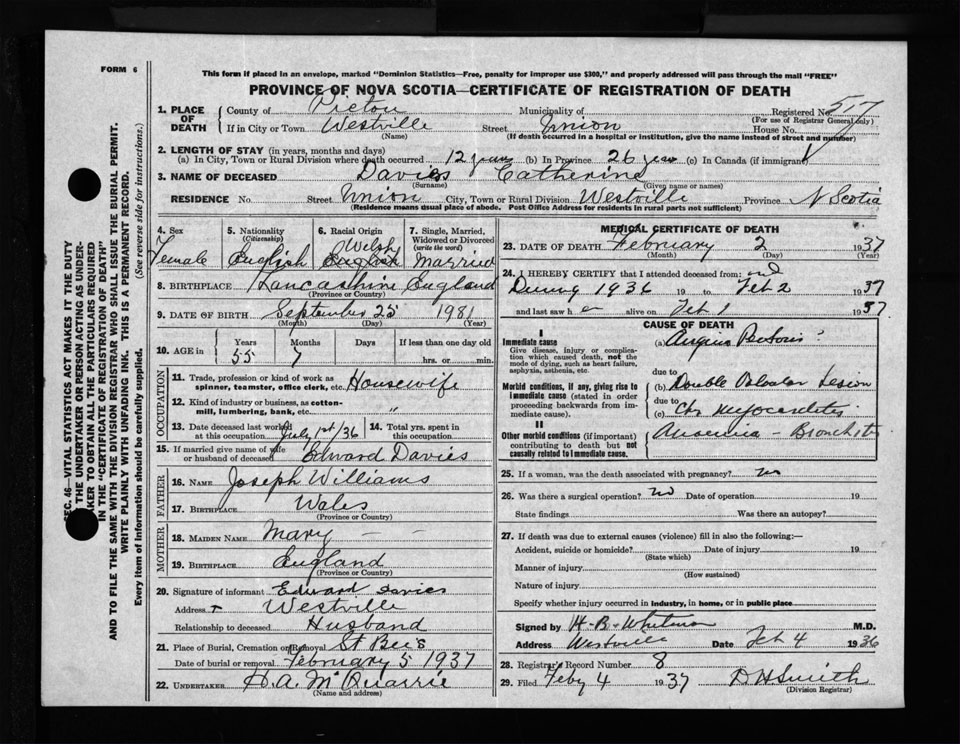 FORM 6
This form if placed in an envelope, marked "Dominion Statistics—Free, penalty for improper use $300," and properly addressed will pass through the mail "FREE"
PROVINCE OF NOVA SCOTIA—CERTIFICATE OF REGISTRATION OF DEATH
SEC. 46—VITAL STATISTICS ACT MAKES IT THE DUTY
OF THE UNDERTAKER OR PERSON ACTING AS UNDER-
TAKER TO OBTAIN ALL THE PARTICULARS REQUIRED
IN THE "CERTIFICATE OF REGISTRATION OF DEATH"
AND TO FILE THE SAME WITH THE DIVISION REGISTRAR WHO SHALL ISSUE THE BURIAL PERMIT.
WRITE PLAINLY WITH UNFADING INK. THIS IS A PERMANENT RECORD.
Every item of Information should be carefully supplied. (See reverse side for instructions.)
1. PLACE OF DEATH
County of Pictou Municipality of Registered No. 517
(For use of Registrar General only)
If in City or Town Westville Street Union House No.
(Name) (If death occurred in a hospital or institution, give the name instead of street and number)
2. LENGTH OF STAY (in years, months and days)
(a) In City, Town or Rural Division where death occurred 12 years (b) In Province 26 years (c) In Canada (if immigrant)
3. NAME OF DECEASED Davies Catherine
(Surname) (Given name or names)
RESIDENCE No. Street Union City, Town or Rural Division Westville Province N Scotia
(Residence means usual place of abode. Post Office Address for residents in rural parts not sufficient)
4. Sex Female
5. Nationality (Citizenship) English
6. Racial Origin Welsh English
7. Single, Married, Widowed or Divorced (write the word) Married
8. BIRTHPLACE Lancashire England
(Province or Country)
9. DATE OF BIRTH September 25 1981
(Month) (Day) (Year)
10. AGE in Years Months Days If less than one day old
55 7 hrs. or min.
OCCUPATION
11. Trade, profession or kind of work as spinner, teamster, office clerk, etc. Housewife
12. Kind of industry or business, as cotton-mill, lumbering, bank, etc. "
13. Date deceased last worked at this occupation July 1st/36
14. Total yrs. spent in this occupation
15. If married give name of wife or husband of deceased Edward Davies
FATHER
16. NAME Joseph Williams
17. BIRTHPLACE Wales
(Province or Country)
MOTHER
18. MAIDEN NAME Mary — —
19. BIRTHPLACE England
(Province or Country)
20. Signature of informant Edward Davies
Address Westville
Relationship to deceased Husband
21. Place of Burial, Cremation or Removal St Bee's
Date of burial or removal February 5 1937
22. UNDERTAKER D. A. McQuarrie
(Name and address)
MEDICAL CERTIFICATE OF DEATH
23. DATE OF DEATH February 2 1937
(Month) (Day) (Year)
24. I HEREBY CERTIFY that I attended deceased from: and
During 1936 19 to Feb 2 1937
and last saw h er alive on Feb 1 1937
CAUSE OF DEATH
I
Immediate cause
Give disease, injury or complication which caused death, not the mode of dying, such as heart failure, asphyxia, asthenia, etc.
(a) Angina Pectoris
due to
Morbid conditions, if any, giving rise to immediate cause (stated in order proceeding backwards from immediate cause).
(b) Double Valvular Lesion
due to
(c) Chr Myocarditis
II
Other morbid conditions (if important) contributing to death but not causally related to immediate cause.
Anaemia — Bronchitis
25. If a woman, was the death associated with pregnancy? no
26. Was there a surgical operation? no Date of operation 19
State findings Was there an autopsy?
27. If death was due to external causes (violence) fill in also the following:—
Accident, suicide or homicide? Date of injury 19
(State which)
Manner of injury
(How sustained)
Nature of injury
Specify whether injury occurred in industry, in home, or in public place
Signed by H. B. Whitman M.D.
Address Westville Date Feb 4 1936
28. Registrar's Record Number 8
29. Filed Feby 4 1937 D H Smith
(Division Registrar)